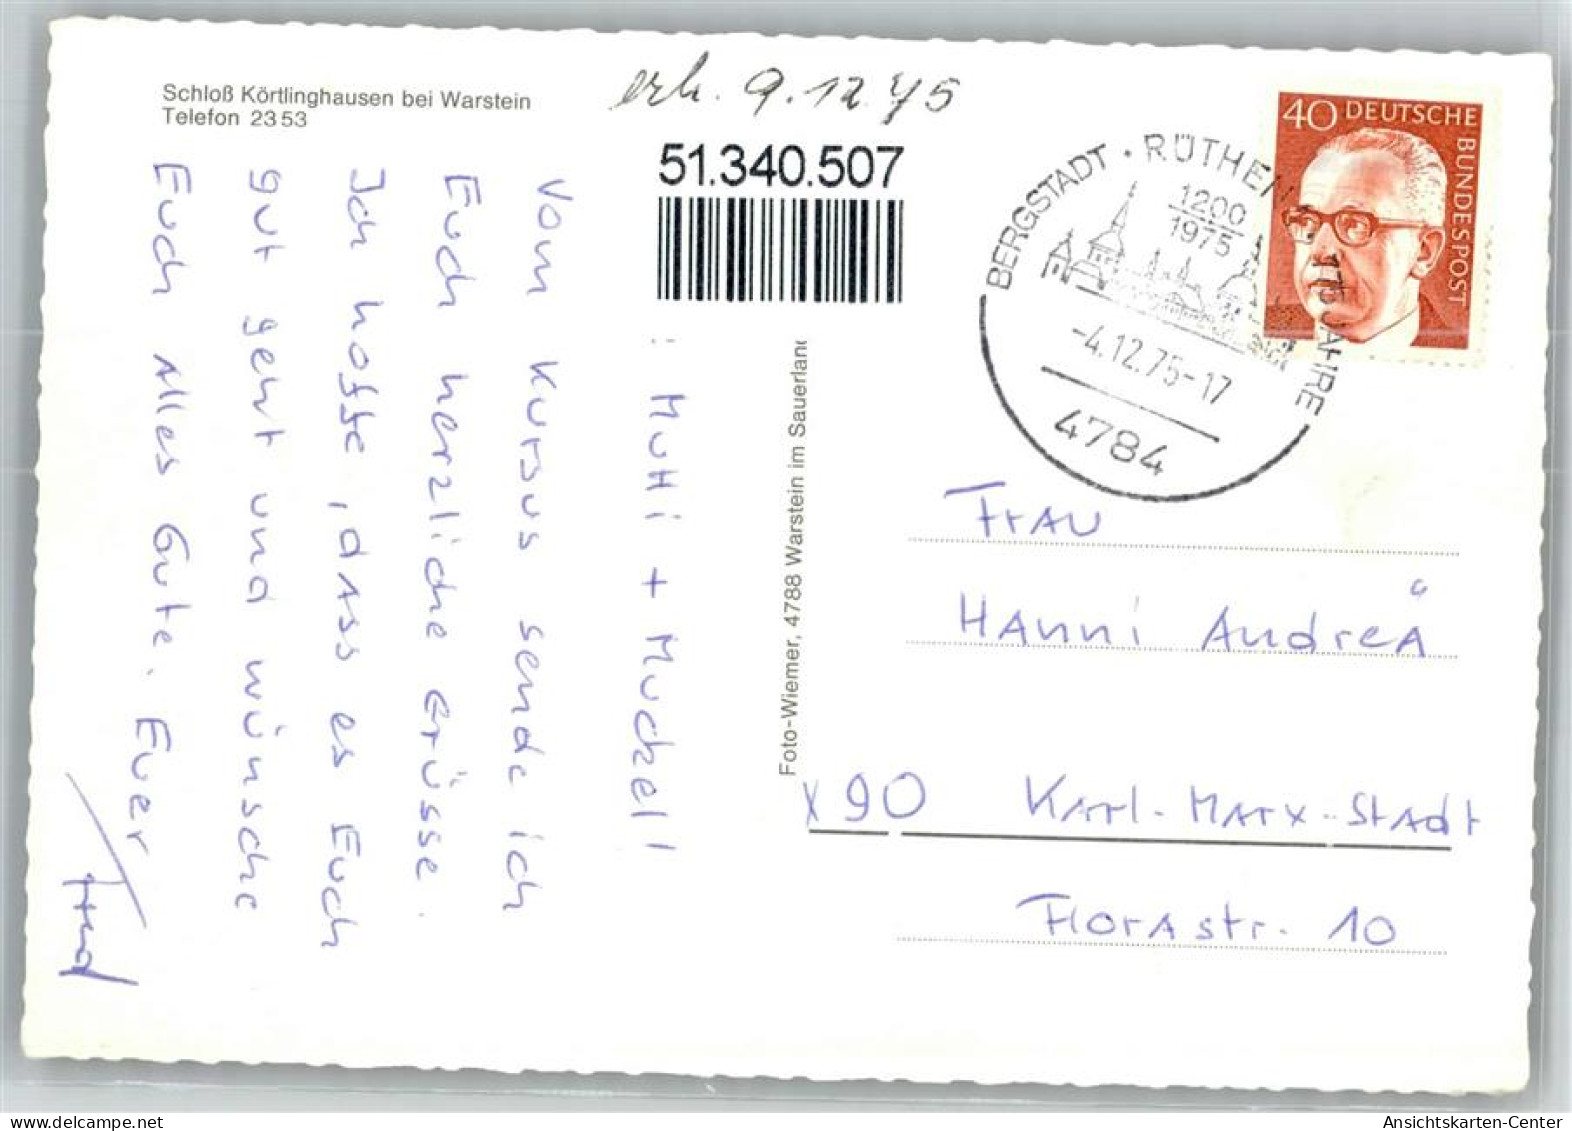 Schloß Körtlinghausen bei Warstein
Telefon 23 53
erh. 9.12.75
51.340.507
BERGSTADT · RÜTHEN
775 JAHRE
1200
1975
-4.12.75-17
4784
40 DEUTSCHE
BUNDESPOST
: Mutti + Muckel!
Vom Kursus sende ich
Euch herzliche Grüsse.
Ich hoffe, dass es Euch
gut geht und wünsche
Euch Alles Gute. Euer
Foto-Wiemer, 4788 Warstein im Sauerland
Frau
Hanni Andreä
X 90 Karl-Marx-Stadt
Florastr. 10
www.delcampe.net
Ansichtskarten-Center